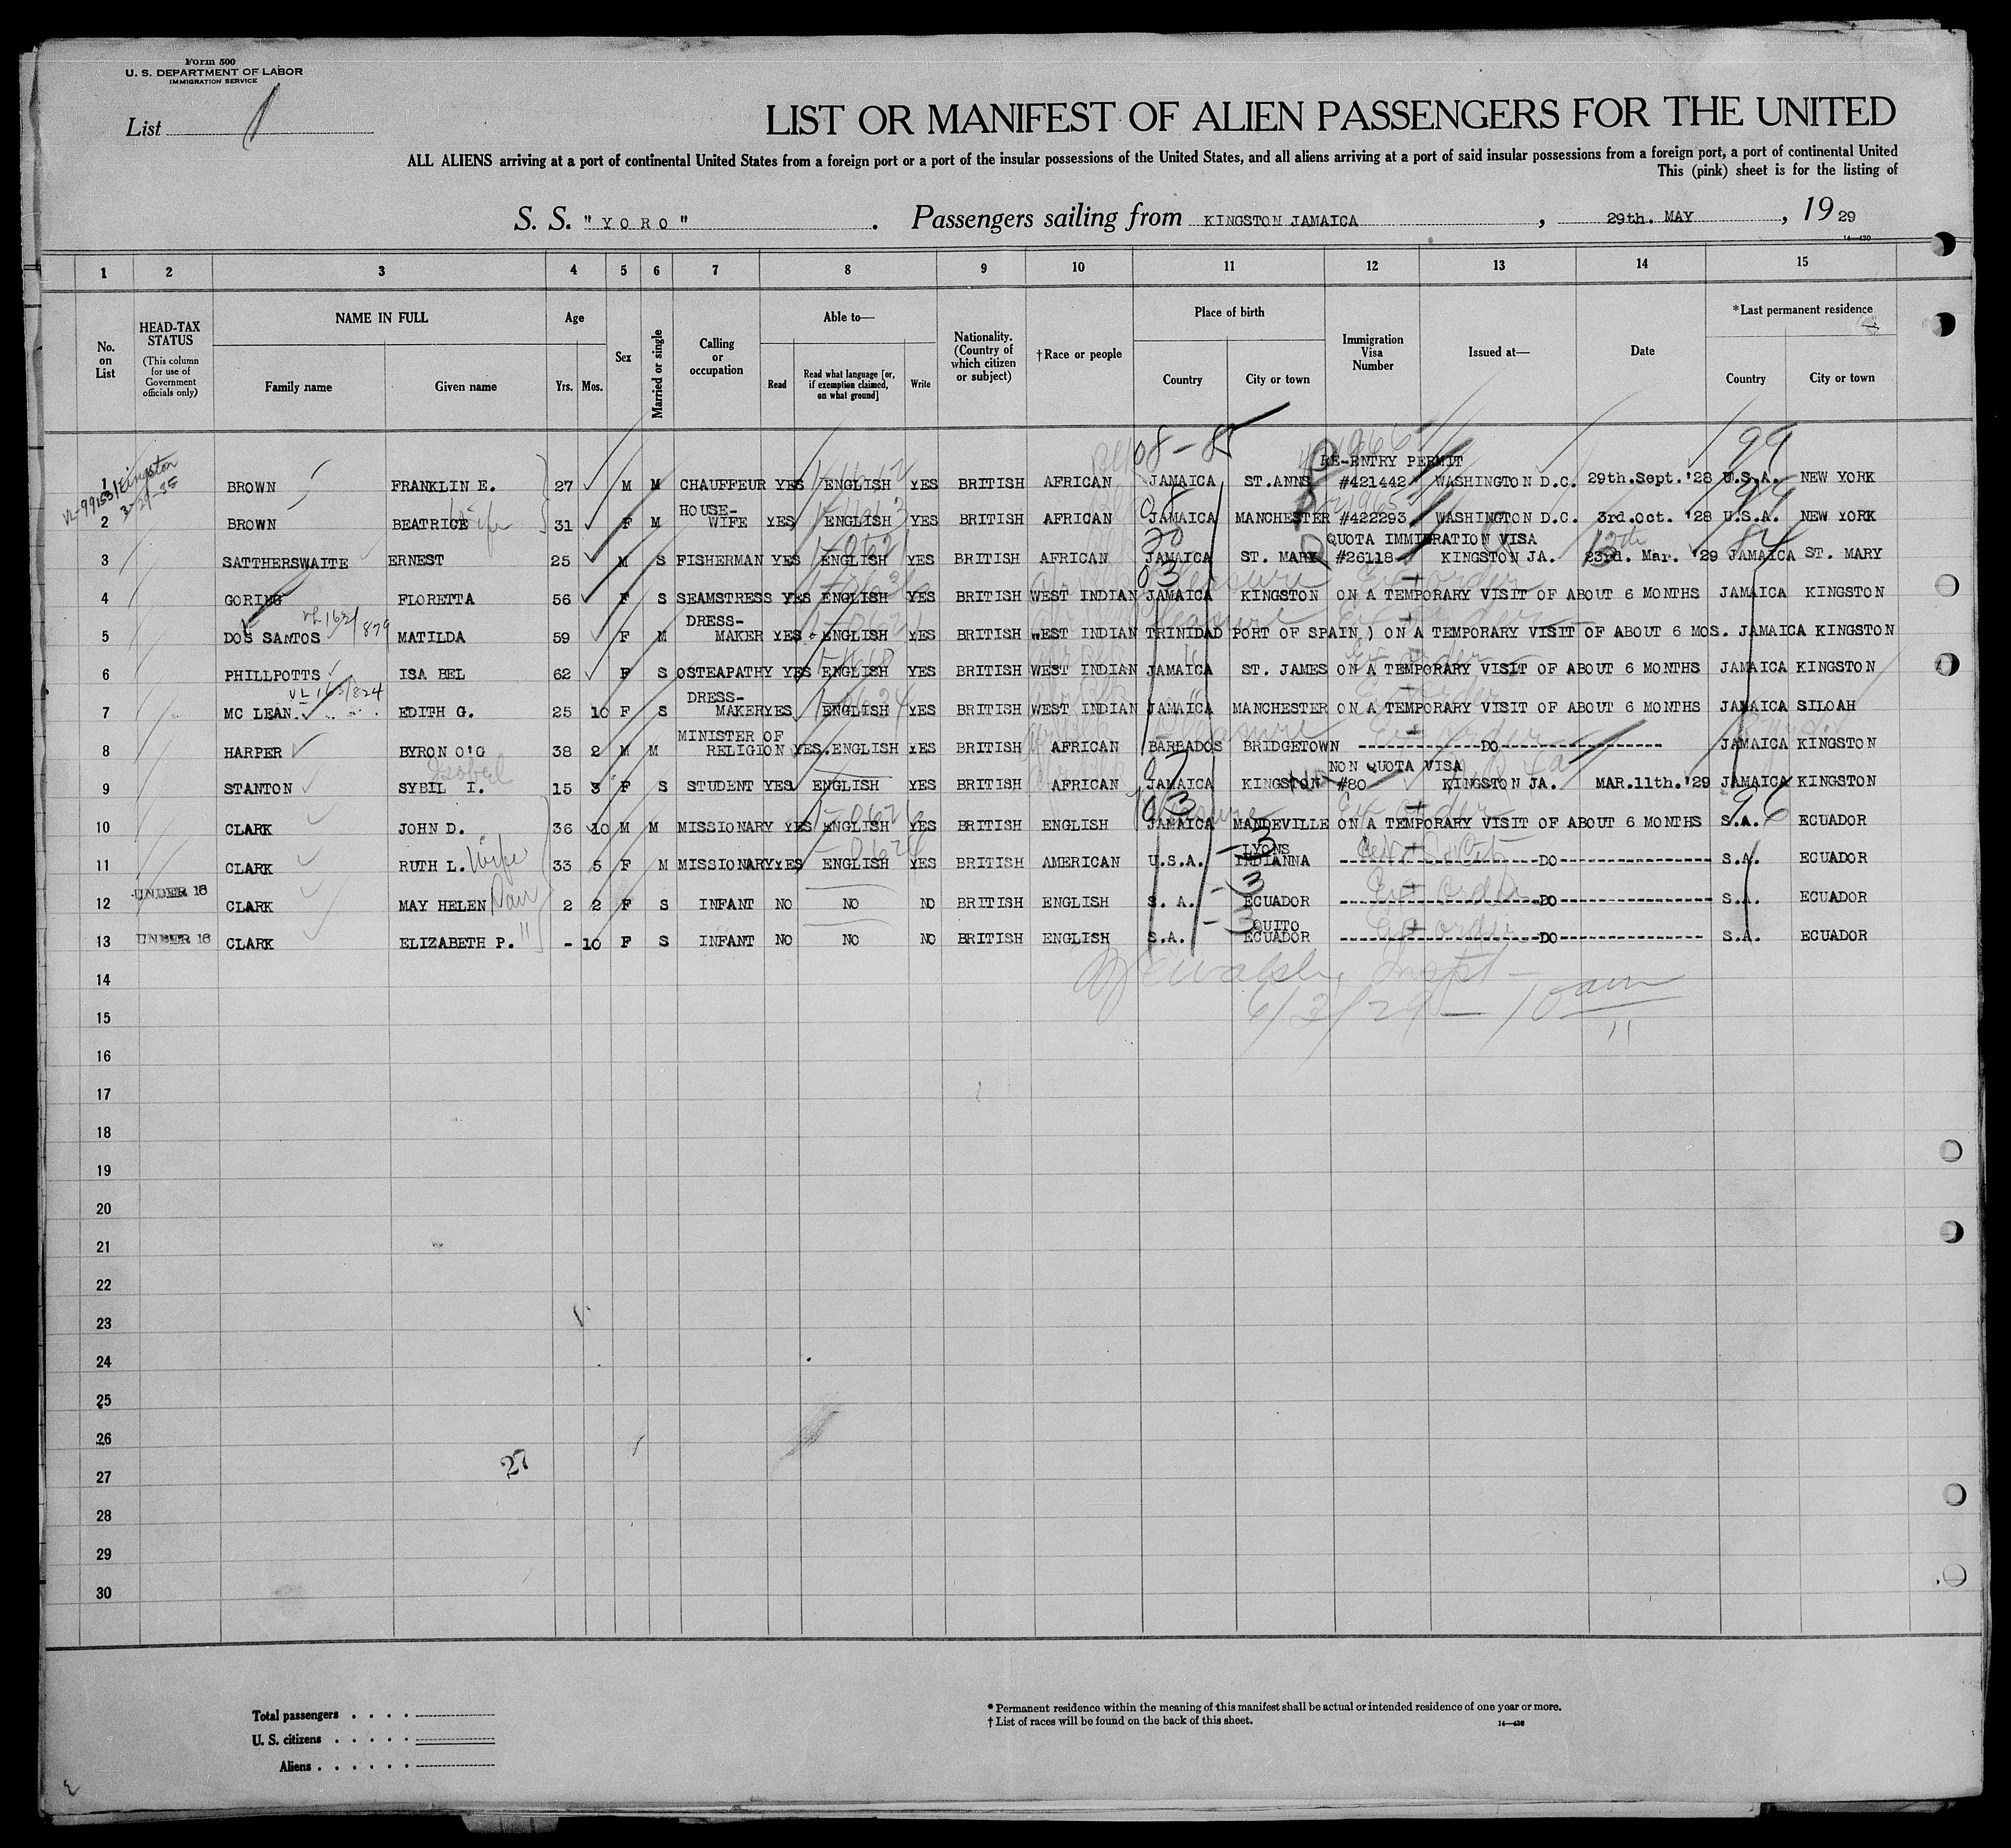 Form 500
U. S. DEPARTMENT OF LABOR
IMMIGRATION SERVICE
List 1
LIST OR MANIFEST OF ALIEN PASSENGERS FOR THE UNITED
ALL ALIENS arriving at a port of continental United States from a foreign port or a port of the insular possessions of the United States, and all aliens arriving at a port of said insular possessions from a foreign port, a port of continental United
This (pink) sheet is for the listing of
S. S. "YORO" . Passengers sailing from KINGSTON JAMAICA , 29th. MAY , 19 29
14—430
1 2 3 4 5 6 7 8 9 10 11 12 13 14 15
No. on List
HEAD-TAX STATUS (This column for use of Government officials only)
NAME IN FULL
Family name Given name
Age
Yrs. Mos.
Sex
Married or single
Calling or occupation
Able to—
Read Read what language [or, if exemption claimed, on what ground] Write
Nationality. (Country of which citizen or subject)
†Race or people
Place of birth
Country City or town
Immigration Visa Number
Issued at—
Date
*Last permanent residence
Country City or town
VL-99153/Kingston
3-29-35
08-85 99
RE-ENTRY PERMIT
1 BROWN FRANKLIN E. 27 M M CHAUFFEUR YES ENGLISH YES BRITISH AFRICAN JAMAICA ST.ANNS #421442 WASHINGTON D.C. 29th.Sept.'28 U.S.A. NEW YORK
2 BROWN BEATRICE Wife 31 F M HOUSE-WIFE YES ENGLISH YES BRITISH AFRICAN JAMAICA MANCHESTER #422293 WASHINGTON D.C. 3rd.Oct. '28 U.S.A. NEW YORK
QUOTA IMMIGRATION VISA
3 SATTHERSWAITE ERNEST 25 M S FISHERMAN YES ENGLISH YES BRITISH AFRICAN JAMAICA ST. MARY #26118 KINGSTON JA. 23rd. Mar. '29 JAMAICA ST. MARY
4 GORING FLORETTA 56 F S SEAMSTRESS YES ENGLISH YES BRITISH WEST INDIAN JAMAICA KINGSTON ON A TEMPORARY VISIT OF ABOUT 6 MONTHS JAMAICA KINGSTON
VL 1621/879
5 DOS SANTOS MATILDA 59 F M DRESS-MAKER YES ENGLISH YES BRITISH WEST INDIAN TRINIDAD PORT OF SPAIN,) ON A TEMPORARY VISIT OF ABOUT 6 MOS. JAMAICA KINGSTON
6 PHILLPOTTS ISA BEL 62 F S OSTEAPATHY YES ENGLISH YES BRITISH WEST INDIAN JAMAICA ST. JAMES ON A TEMPORARY VISIT OF ABOUT 6 MONTHS JAMAICA KINGSTON
VL 163/824
7 MC LEAN. EDITH G. 25 10 F S DRESS-MAKER YES ENGLISH YES BRITISH WEST INDIAN JAMAICA MANCHESTER ON A TEMPORARY VISIT OF ABOUT 6 MONTHS JAMAICA SILOAH
8 HARPER BYRON O'G 38 2 M M MINISTER OF RELIGION YES. ENGLISH YES BRITISH AFRICAN BARBADOS BRIDGETOWN --------------DO------------------ JAMAICA KINGSTON
Isobel
NON QUOTA VISA
9 STANTON SYBIL I. 15 3 F S STUDENT YES ENGLISH YES BRITISH AFRICAN JAMAICA KINGSTON #80 KINGSTON JA. MAR.11th.'29 JAMAICA KINGSTON
10 CLARK JOHN D. 36 10 M M MISSIONARY YES ENGLISH YES BRITISH ENGLISH JAMAICA MANDEVILLE ON A TEMPORARY VISIT OF ABOUT 6 MONTHS S.A. ECUADOR
11 CLARK RUTH L. Wife 33 5 F M MISSIONARY YES ENGLISH YES BRITISH AMERICAN U.S.A. LYONS INDIANNA ----------------------DO---------------- S.A. ECUADOR
UNDER 16
12 CLARK MAY HELEN Dau 2 2 F S INFANT NO NO NO BRITISH ENGLISH S. A. ECUADOR ----------------------DO---------------- S.A. ECUADOR
13 UNDER 16 CLARK ELIZABETH P. " - 10 F S INFANT NO NO NO BRITISH ENGLISH S.A. QUITO ECUADOR ----------------------DO---------------- S.A. ECUADOR
14
6/3/29 — 10 am
15
16
17
18
19
20
21
22
23
24
25
26
27
27
28
29
30
Total passengers . . . .
U. S. citizens . . . . .
Aliens . . . . . .
* Permanent residence within the meaning of this manifest shall be actual or intended residence of one year or more.
† List of races will be found on the back of this sheet.
14—430